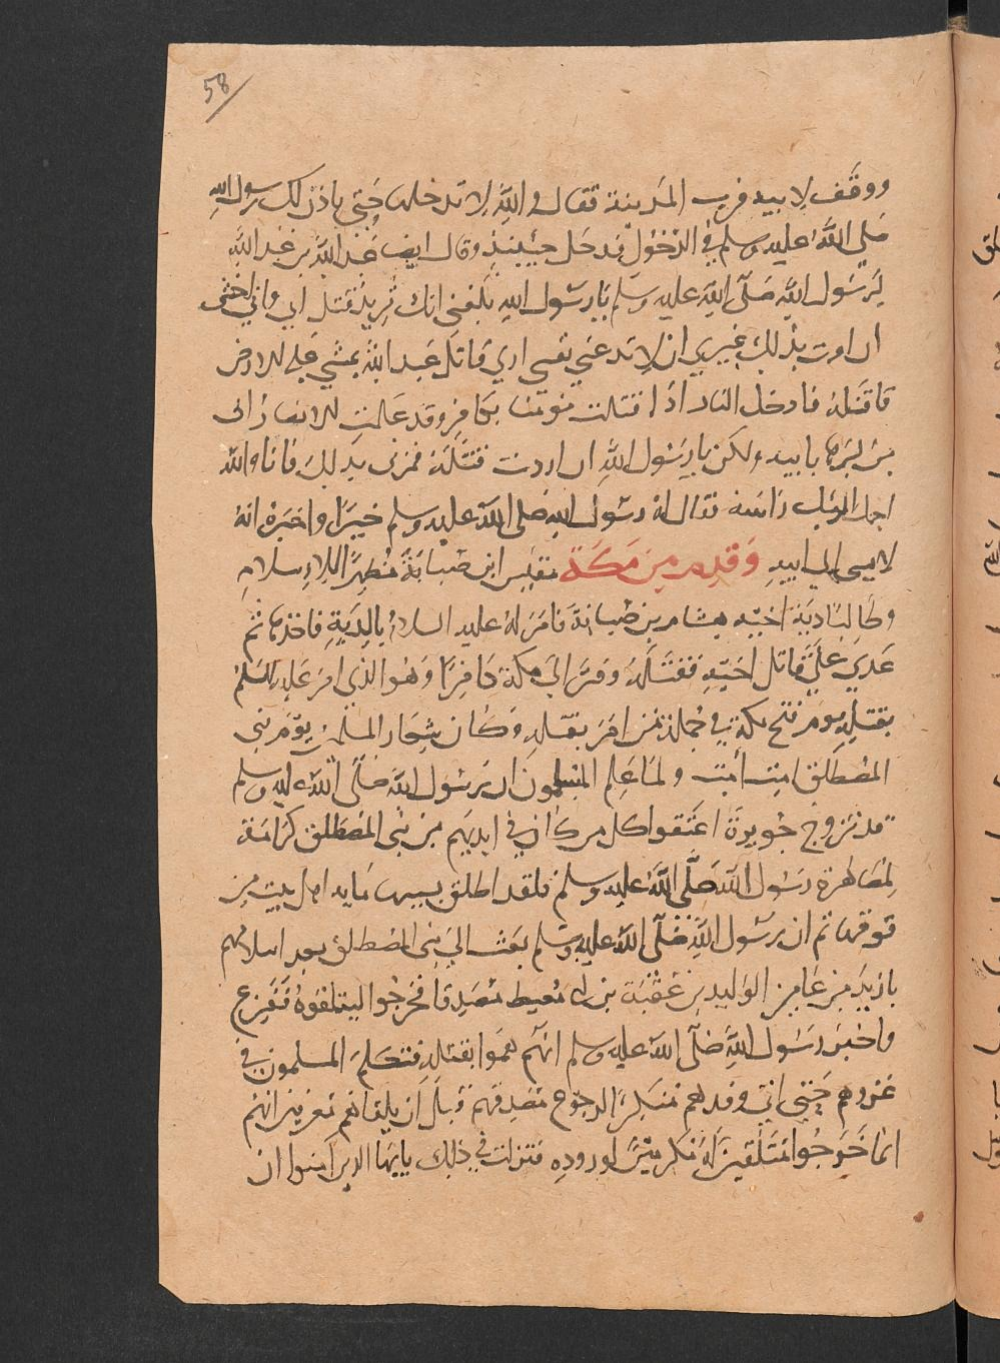 58
ووقف لابيه قرب المدينة فقال والله لا تدخلها حتى ياذن لك رسول الله
صلى الله عليه وسلم في الدخول فدخل حينيذ وقال ايضا عبد الله بن عبد الله
لرسول الله صلى الله عليه وسلم يا رسول الله بلغني انك تريد قتل ابي واني اخشى
ان امرت بذلك غيري ان لا تدعني نفسي اري قاتل عبد الله يمشي على الارض
فاقتله فادخل النار اذا قتلت مومنا بكافر وقد علمت الانصار اني
من ابرها بابيه ولكن يا رسول الله ان اردت قتله فمرني بذلك فانا والله
احمل اليك راسه فقال له رسول الله صلى الله عليه وسلم خيرا واخبره انه
لا يسي الى ابيه وقدم من مكة مقيس ابن ضبابة مظهرا للاسلام
وطالبا دية اخيه هشام بن ضبابة فامر له عليه السلام بالدية فاخذها ثم
عدي على قاتل اخيه فقتله وفر الى مكة كافرا وهو الذي امر عليه السلم
بقتله يوم فتح مكة في جملة من امر بقتله وكان شعار المسلمين يوم بني
المصطلق امت امت ولما علم المسلمون ان رسول الله صلى الله عليه وسلم
قد تزوج جويرة اعتقوا كل من كان في ايديهم من بني المصطلق كرامة
لمصاهرة رسول الله صلى الله عليه وسلم فلقد اطلق بسببها ماية اهل بيت من
قومها ثم ان رسول الله صلى الله عليه وسلم بعث الى بني المصطلق بعد اسلامهم
بازيد من عامين الوليد بن عقبة بن ابي معيط مصدقا فخرجوا ليتلقوه ففزع
واخبر رسول الله صلى الله عليه وسلم انهم هموا بقتله فتكلم المسلمون في
غزوهم حتى اتي وفدهم منكرا لرجوع مصدقهم قبل ان يلقاهم معرفين انهم
انما خرجوا متلقين له مكرمين لوروده فنزلت في ذلك يايها الذين امنوا ان